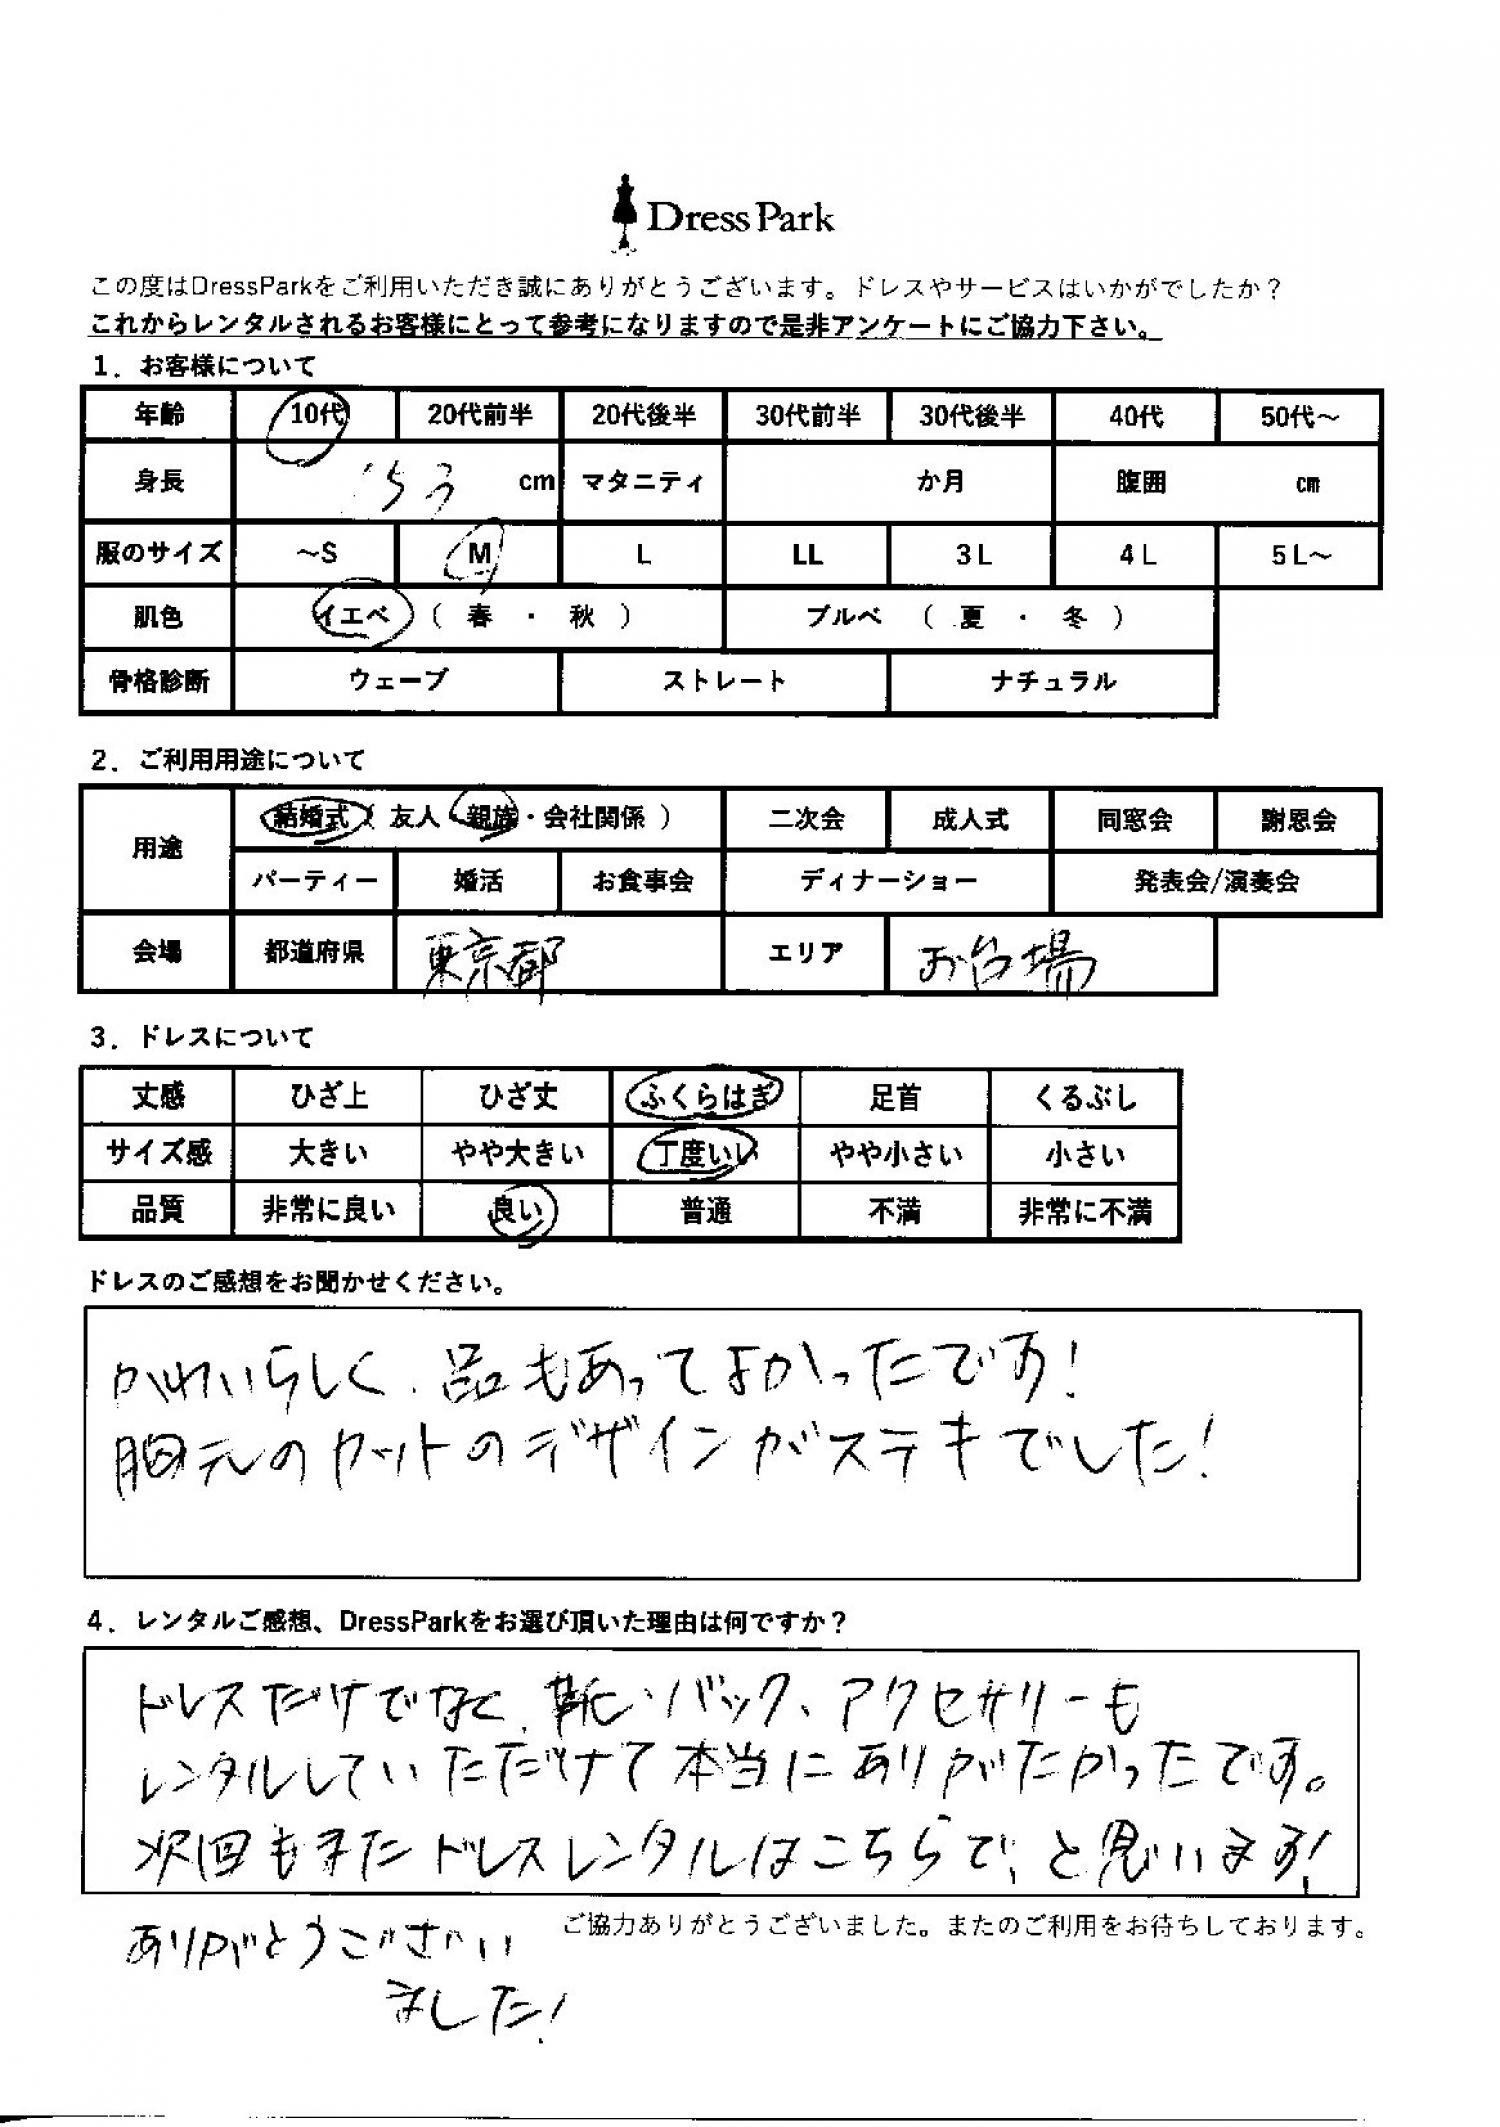 Dress Park
この度はDressParkをご利用いただき誠にありがとうございます。ドレスやサービスはいかがでしたか？
これからレンタルされるお客様にとって参考になりますので是非アンケートにご協力下さい。
1．お客様について
年齢 10代 20代前半 20代後半 30代前半 30代後半 40代 50代～
身長 153 cm マタニティ か月 腹囲 cm
服のサイズ ～S M L LL 3L 4L 5L～
肌色 イエベ（ 春 ・ 秋 ） ブルベ （ 夏 ・ 冬 ）
骨格診断 ウェーブ ストレート ナチュラル
2．ご利用用途について
用途 結婚式（ 友人・親族・会社関係 ） 二次会 成人式 同窓会 謝恩会
パーティー 婚活 お食事会 ディナーショー 発表会/演奏会
会場 都道府県 東京都 エリア お台場
3．ドレスについて
丈感 ひざ上 ひざ丈 ふくらはぎ 足首 くるぶし
サイズ感 大きい やや大きい 丁度いい やや小さい 小さい
品質 非常に良い 良い 普通 不満 非常に不満
ドレスのご感想をお聞かせください。
かわいらしく、品もあってよかったです！
胸元のカットのデザインがステキでした！
4．レンタルご感想、DressParkをお選び頂いた理由は何ですか？
ドレスだけでなく、靴、バック、アクセサリーも
レンタルしていただけて本当にありがたかったです。
次回もまたドレスレンタルはこちらで、と思います！
ご協力ありがとうございました。またのご利用をお待ちしております。
ありがとうございい
ました！